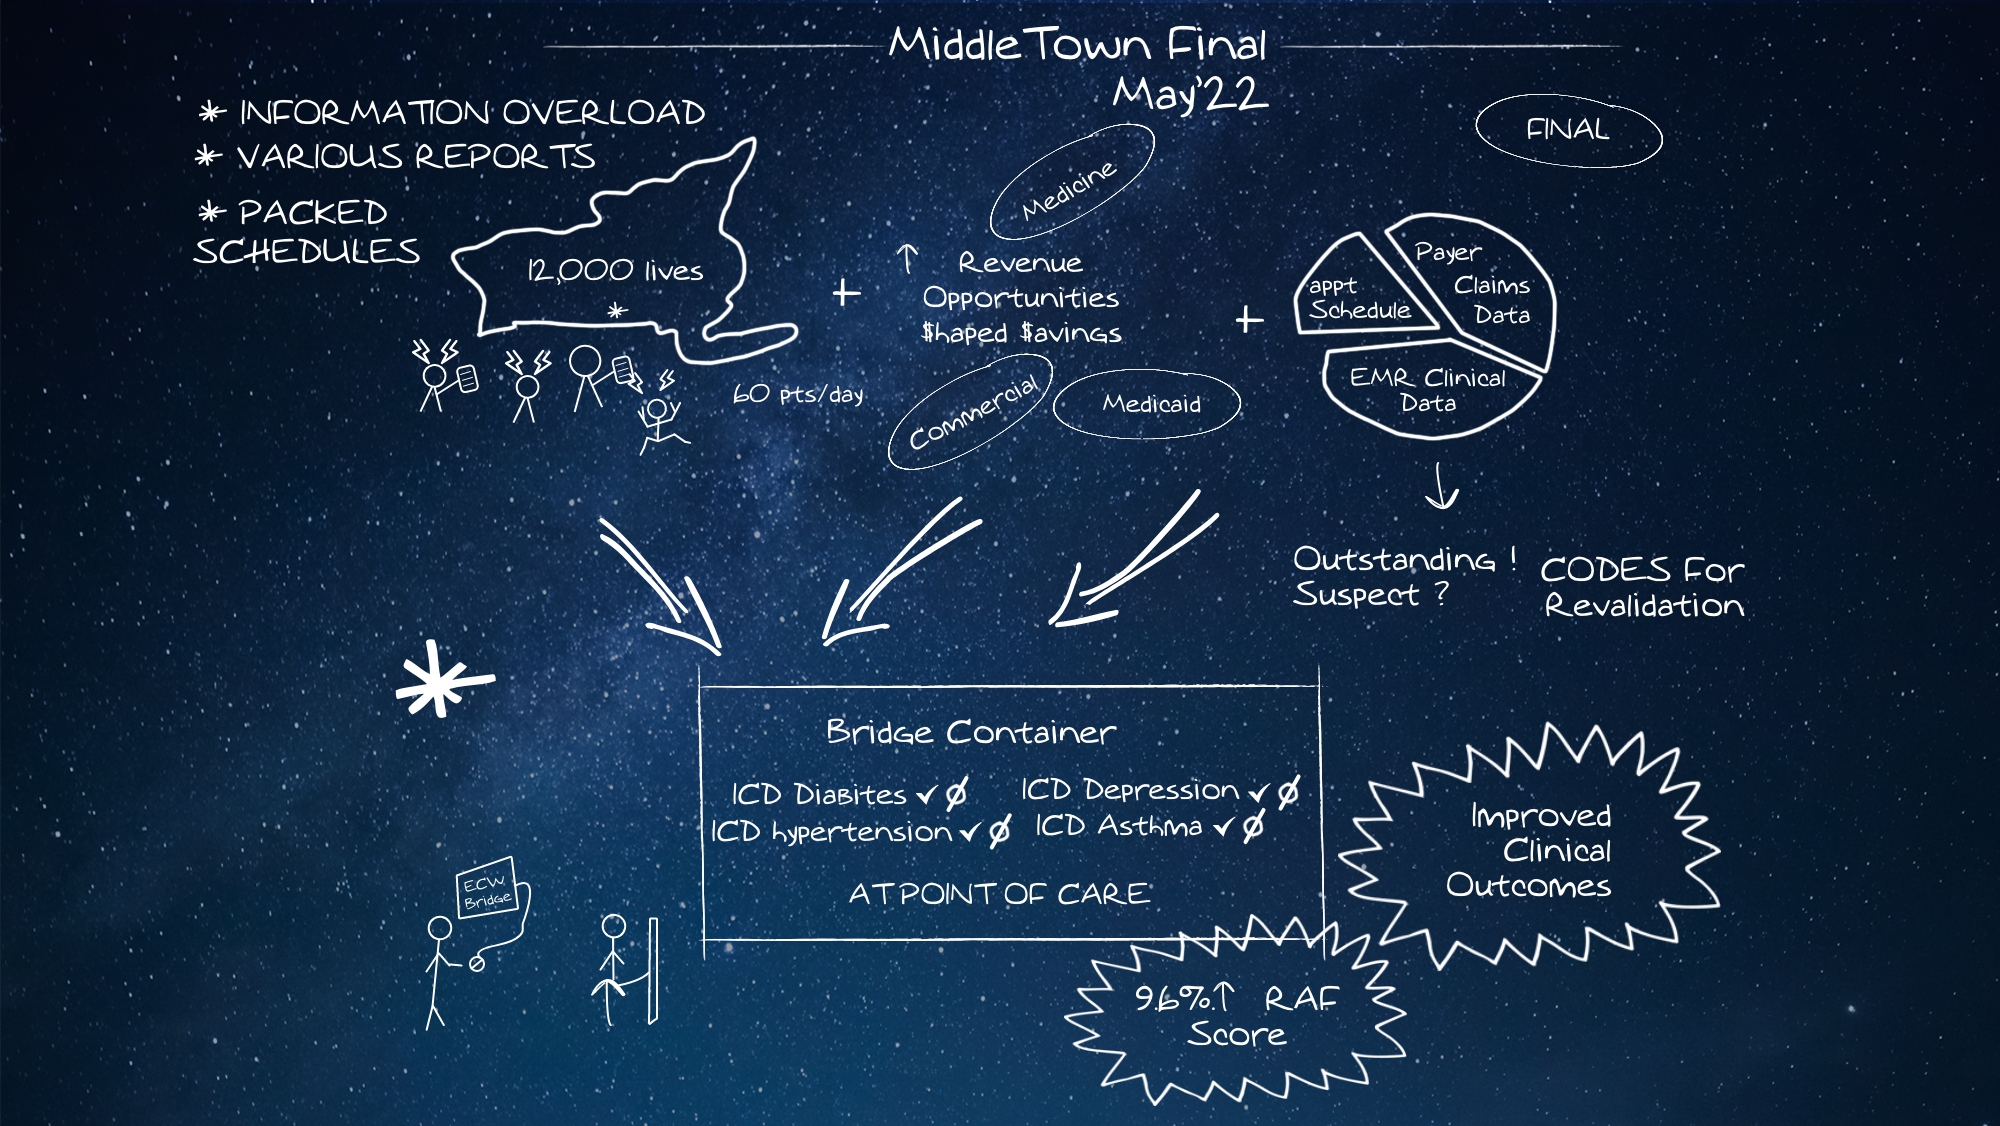 MiddleTown Final
May'22
* INFORMATION OVERLOAD
* VARIOUS REPORTS
* PACKED
SCHEDULES
12,000 lives
*
60 pts/day
+
Medicine
↑ Revenue
Opportunities
$haped $avings
Commercial
Medicaid
+
FINAL
appt
Schedule
Payer
Claims
Data
EMR Clinical
Data
Outstanding !
Suspect ?
CODES For
Revalidation
*
Bridge Container
ICD Diabites ✓ Ø
ICD Depression ✓ Ø
ICD hypertension ✓ Ø
ICD Asthma ✓ Ø
AT POINT OF CARE
Improved
Clinical
Outcomes
9.6%↑ RAF
Score
ECW
Bridge